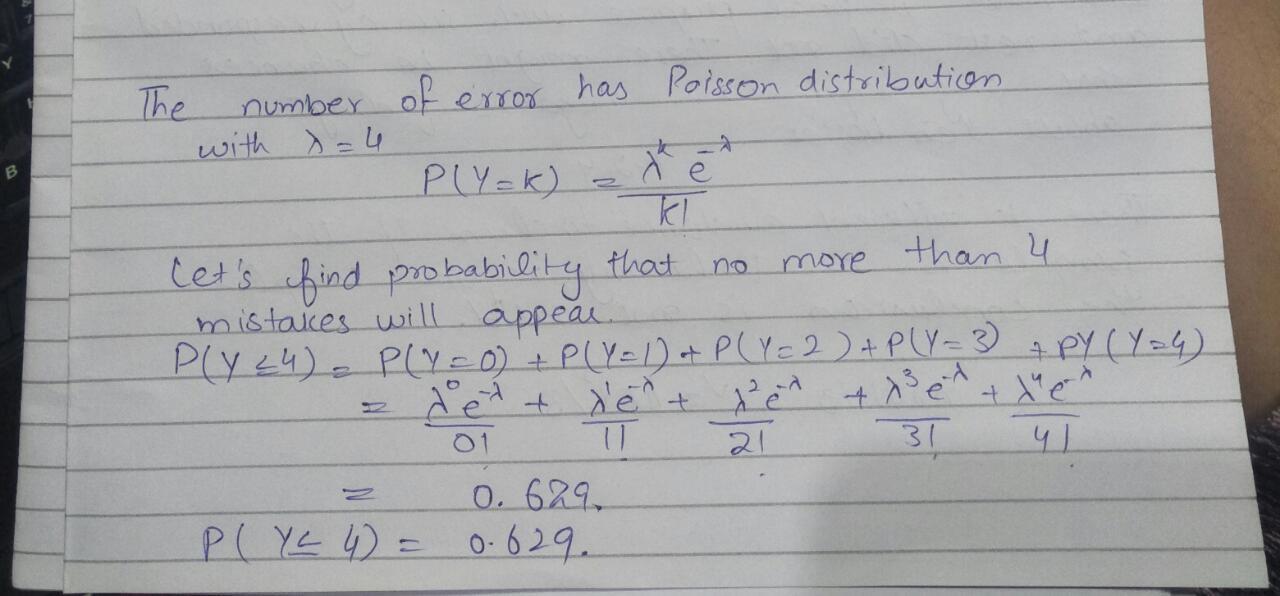 The number of error has Poisson distribution
with λ = 4
P(Y=k) = λ^k e^-λ / k!
Let's find probability that no more than 4
mistakes will appear.
P(Y≤4) = P(Y=0) + P(Y=1) + P(Y=2) + P(Y=3) + PY(Y=4)
= λ^0 e^-λ / 0! + λ^1 e^-λ / 1! + λ^2 e^-λ / 2! + λ^3 e^-λ / 3! + λ^4 e^-λ / 4!
= 0.629.
P(Y≤4) = 0.629.